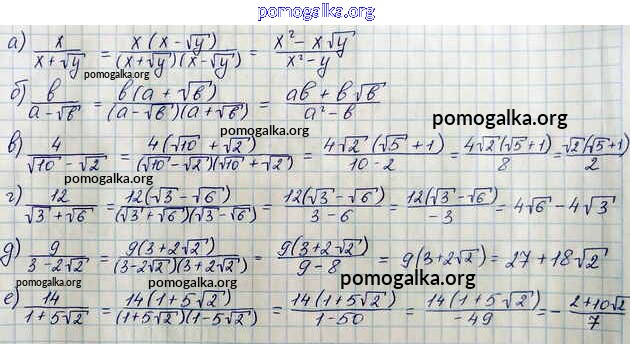 pomogalka.org
а) x/(x + √y) = x(x − √y)/((x + √y)(x − √y)) = (x² − x√y)/(x² − y)
pomogalka.org
б) в/(а − √в) = в(а + √в)/((а − √в)(а + √в)) = (ав + в√в)/(а² − в)
pomogalka.org
pomogalka.org
в) 4/(√10 − √2) = 4(√10 + √2)/((√10 − √2)(√10 + √2)) = 4√2(√5 + 1)/(10 − 2) = 4√2(√5 + 1)/8 = √2(√5 + 1)/2
pomogalka.org
г) 12/(√3 + √6) = 12(√3 − √6)/((√3 + √6)(√3 − √6)) = 12(√3 − √6)/(3 − 6) = 12(√3 − √6)/(−3) = 4√6 − 4√3
pomogalka.org
д) 9/(3 − 2√2) = 9(3 + 2√2)/((3 − 2√2)(3 + 2√2)) = 9(3 + 2√2)/(9 − 8) = 9(3 + 2√2) = 27 + 18√2
pomogalka.org
pomogalka.org
е) 14/(1 + 5√2) = 14(1 + 5√2)/((1 + 5√2)(1 − 5√2)) = 14(1 + 5√2)/(1 − 50) = 14(1 + 5√2)/(−49) = −(2 + 10√2)/7
pomogalka.org